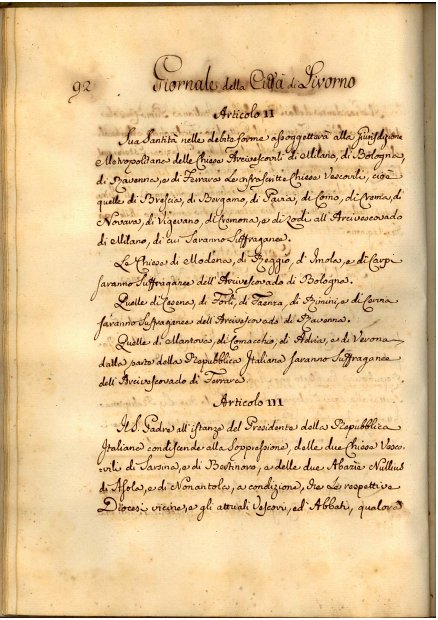 92 Giornale della Città di Livorno
Articolo II
Sua Santità nelle debite forme assoggetterà alla Giurisdizione
Metropolitana delle Chiese Arcivescovili di Milano, di Bologna,
di Ravenna, e di Ferrara le infrascritte Chiese Vescovili, cioè
quelle di Brescia, di Bergamo, di Pavia, di Como, di Crema, di
Novara, di Vigevano, di Cremona, e di Lodi all'Arcivescovado
di Milano, di cui saranno Suffraganee.
Le Chiese di Modena, di Reggio, d'Imola, e di Carpi
saranno Suffraganee dell'Arcivescovado di Bologna.
Quelle di Cesena, di Forlì, di Faenza, di Rimini, e di Cervia
saranno Suffraganee dell'Arcivescovado di Ravenna.
Quelle di Mantova, di Comacchio, di Adria, e di Verona
dalla parte della Repubblica Italiana saranno Suffraganee
dell'Arcivescovado di Ferrara.
Articolo III
Il S. Padre all'istanze del Presidente della Repubblica
Italiana condiscende alla Soppressione, delle due Chiese Vesco-
vili di Sarsina, e di Bertinoro, e delle due Abazie Nullius
di Asola, e di Nonantola, a condizione, che le respettive
Diocesi vicine, e gli attuali Vescovi, ed Abbati, qualora